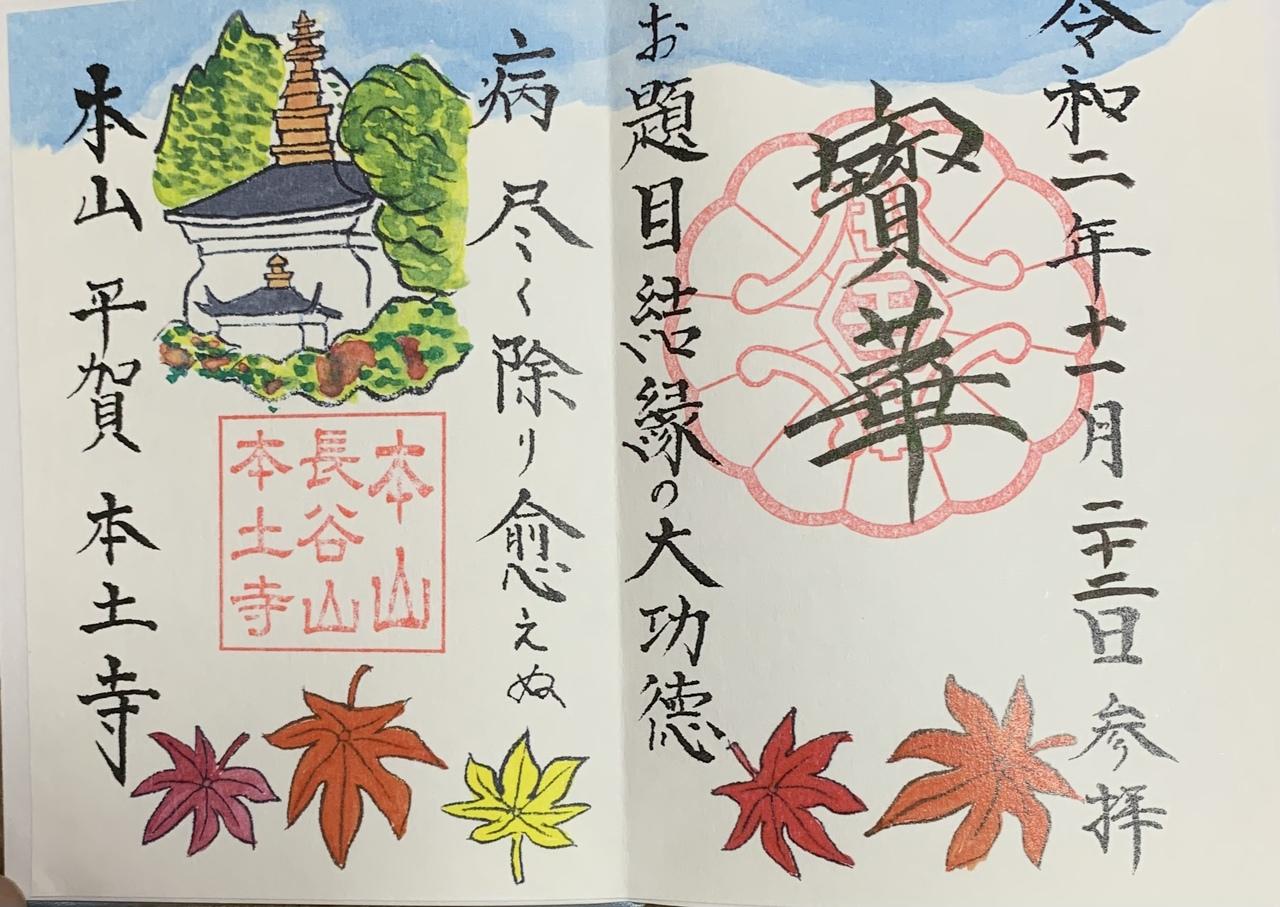 令和二年十一月二十二日参拝
寳華
お題目結縁の大功徳
病尽く除り愈えぬ
本山
長谷山
本土寺
本山 平賀 本土寺